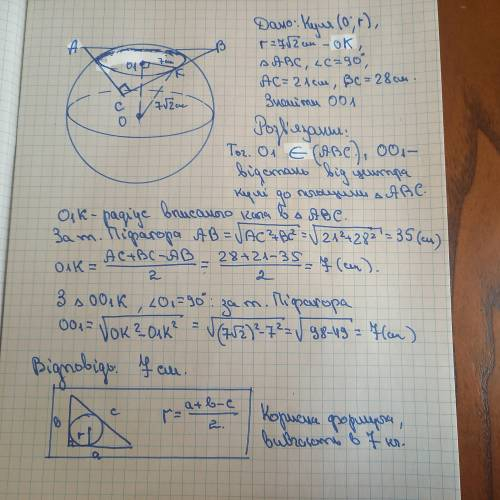 Дано: Куля (О; r),
r = 7√2 см – ОК,
△ABC, ∠C = 90°,
AC = 21 см, BC = 28 см.
Знайти ОО1
A B
O1 7см
K
C
7√2 см
O
Розв'язання:
Точ. О1 ∈ (ABC), ОО1 –
відстань від центра
кулі до площини △ABC.
О1К – радіус вписаного кола в △ABC.
За т. Піфагора AB = √(AC²+BC²) = √(21²+28²) = 35 (см)
О1К = (AC+BC–AB)/2 = (28+21–35)/2 = 7 (см).
З △OO1K, ∠O1 = 90°: за т. Піфагора
OO1 = √(OK²–O1K²) = √((7√2)²–7²) = √(98–49) = 7 (см)
Відповідь: 7 см.
в c r a
r = (a+b–c)/2
Корисна формула,
вивчають в 7 кл.